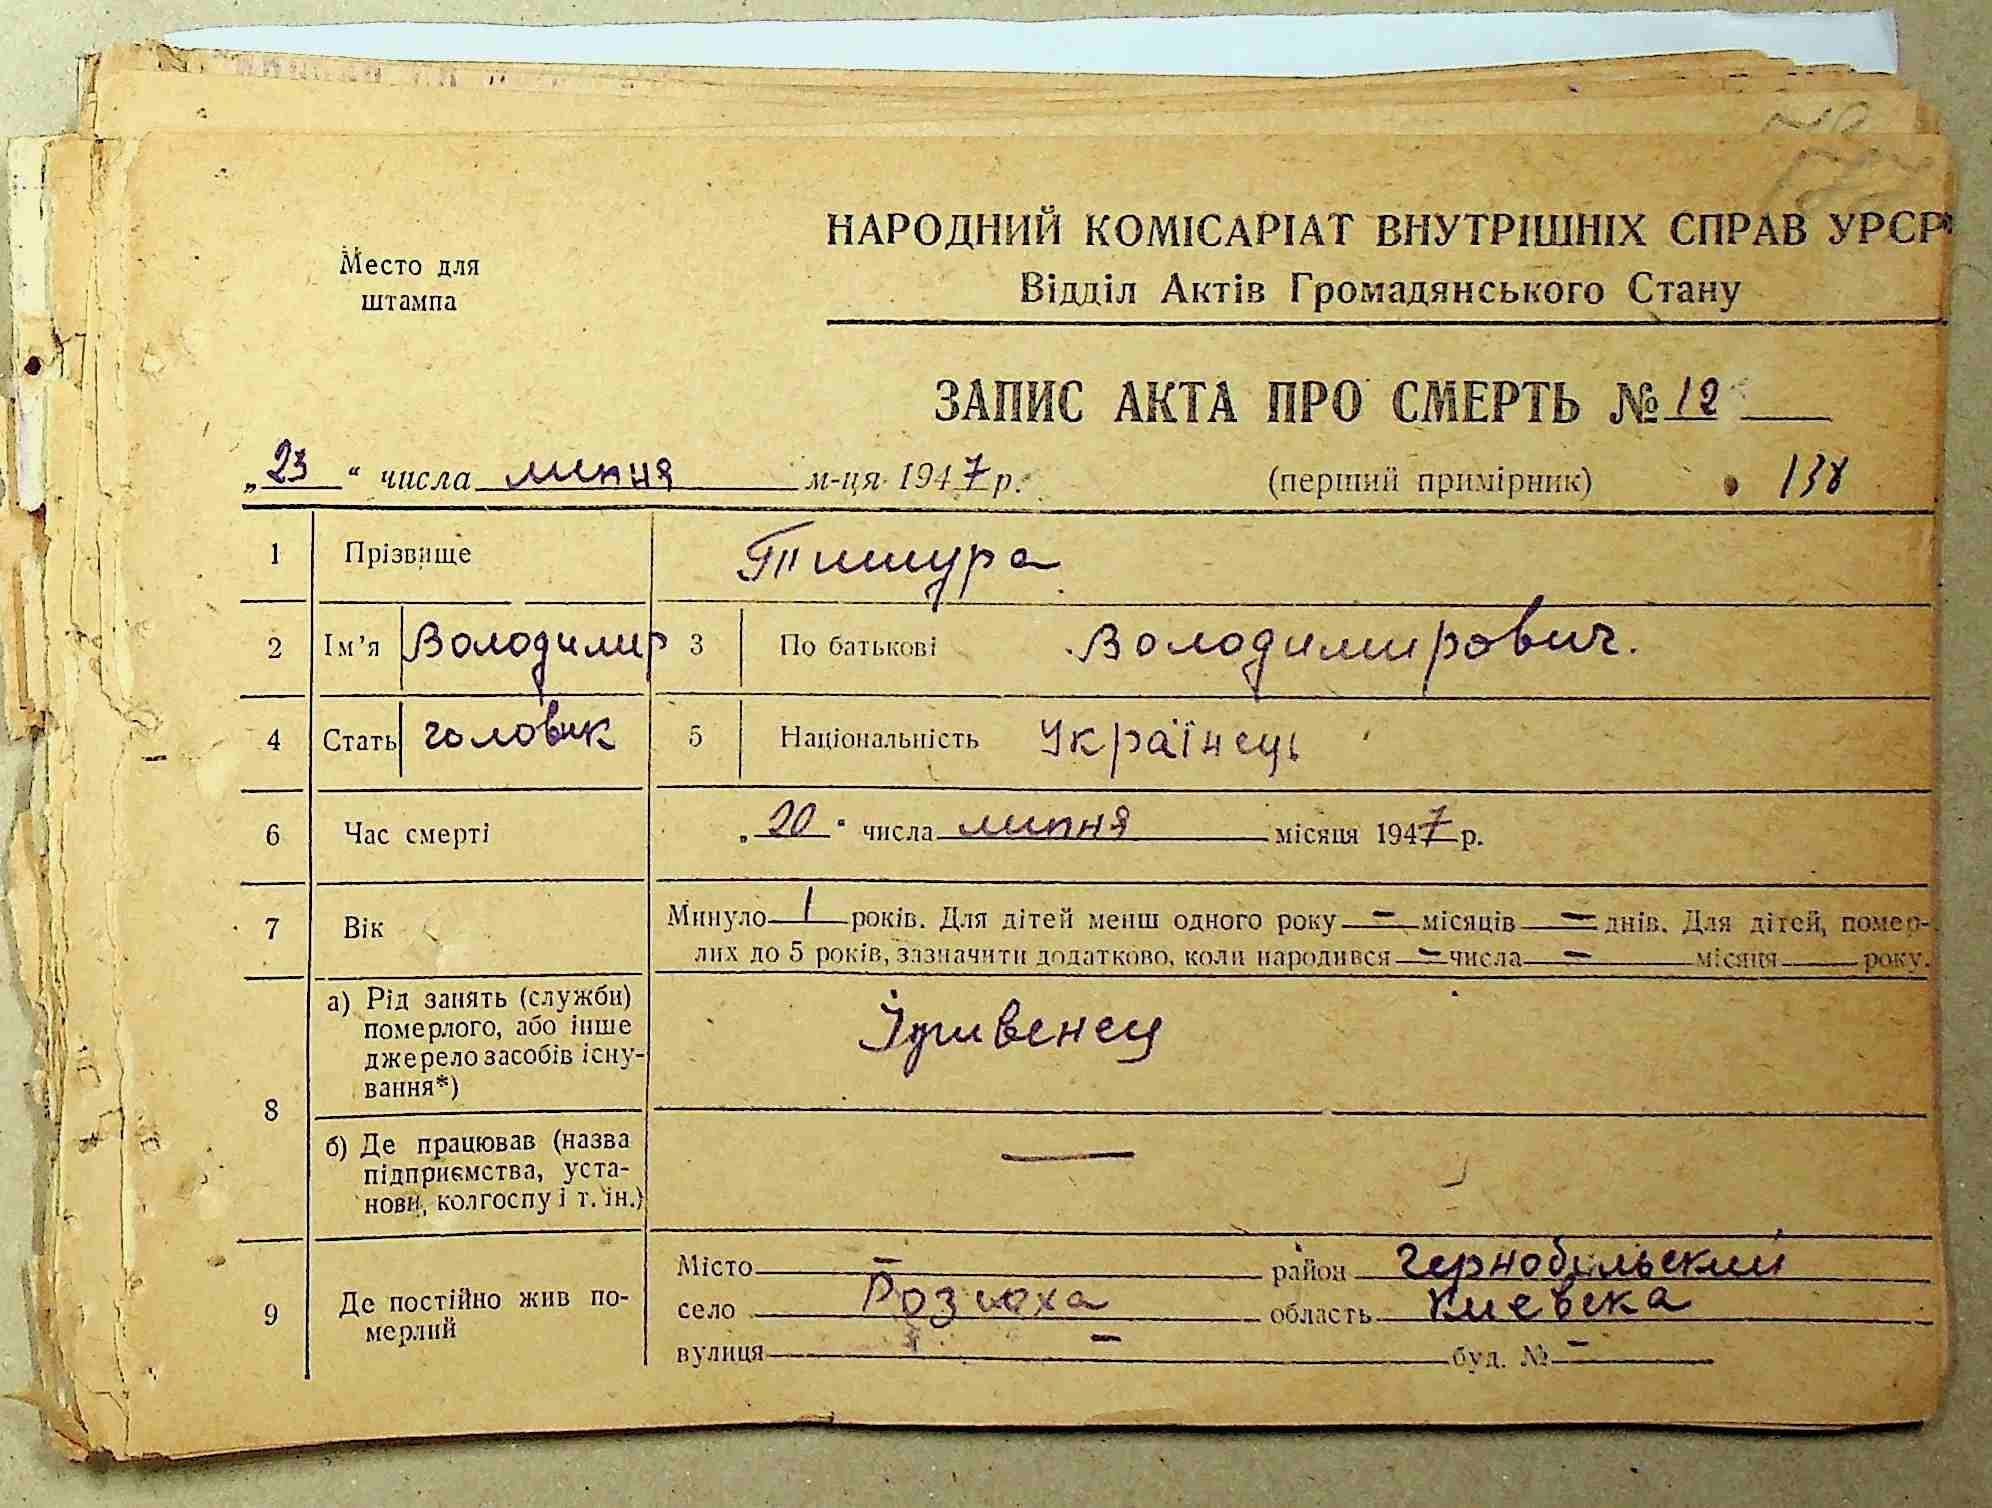 Место для
штампа
НАРОДНИЙ КОМІСАРІАТ ВНУТРІШНІХ СПРАВ УРСР
Відділ Актів Громадянського Стану
ЗАПИС АКТА ПРО СМЕРТЬ № 12
„23“ числа липня м-ця 1947 р. (перший примірник) 138
1 Прізвище Тишура
2 Ім'я Володимир 3 По батькові Володимирович.
4 Стать чоловік 5 Національність Українець
6 Час смерті „20“ числа липня місяця 1947 р.
7 Вік Минуло 1 років. Для дітей менш одного року — місяців — днів. Для дітей, помер-
лих до 5 років, зазначити додатково, коли народився — числа — місяця року.
8 а) Рід занять (служби)
померлого, або інше
джерело засобів існу-
вання*) Іждивенец
б) Де працював (назва
підприємства, уста-
нови, колгоспу і т. ін.) —
9 Де постійно жив по-
мерлий
Місто — район Чернобильский
село Розсоха область Киевска
вулиця — буд. № —